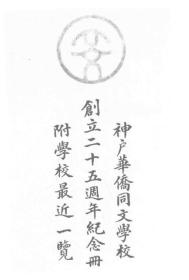 神户華僑同文學校
創立二十五週年紀念冊
附學校最近一覽